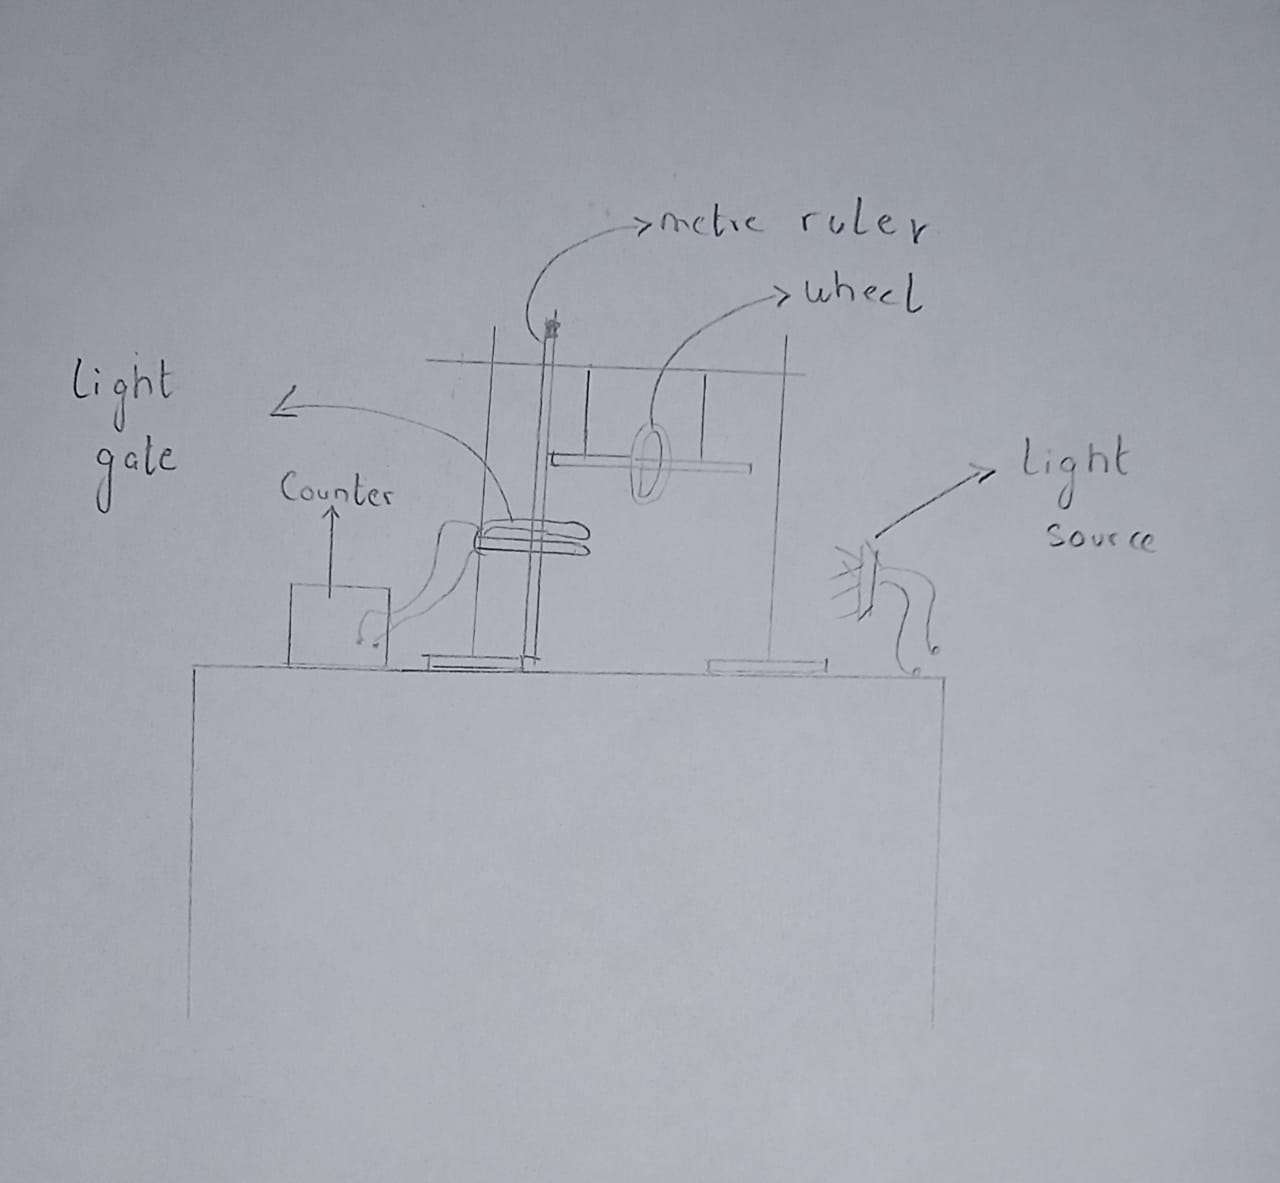 metre ruler
wheel
light
gate
Counter
light
source